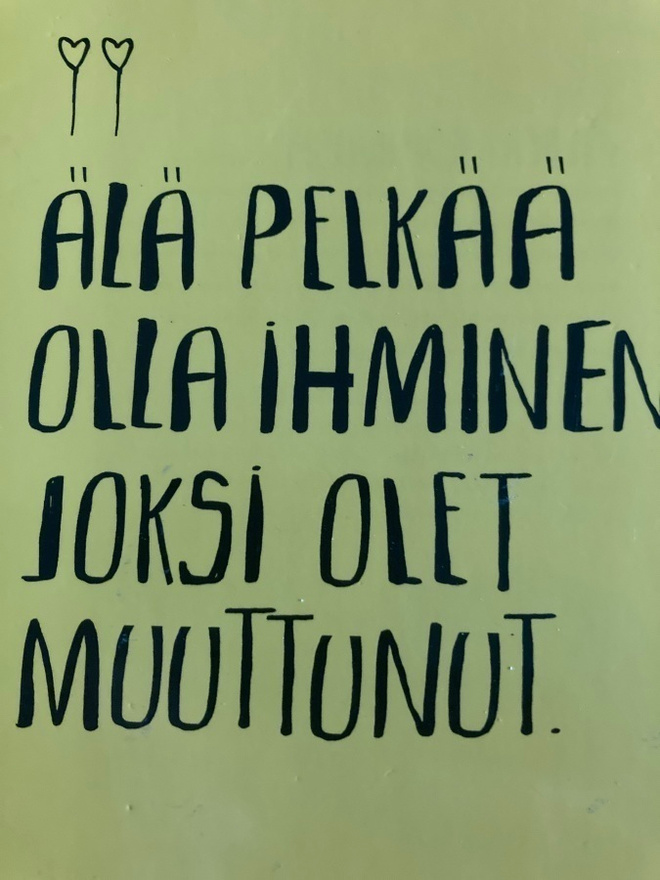 ÄLÄ PELKÄÄ
OLLA IHMINEN
JOKSI OLET
MUUTTUNUT.